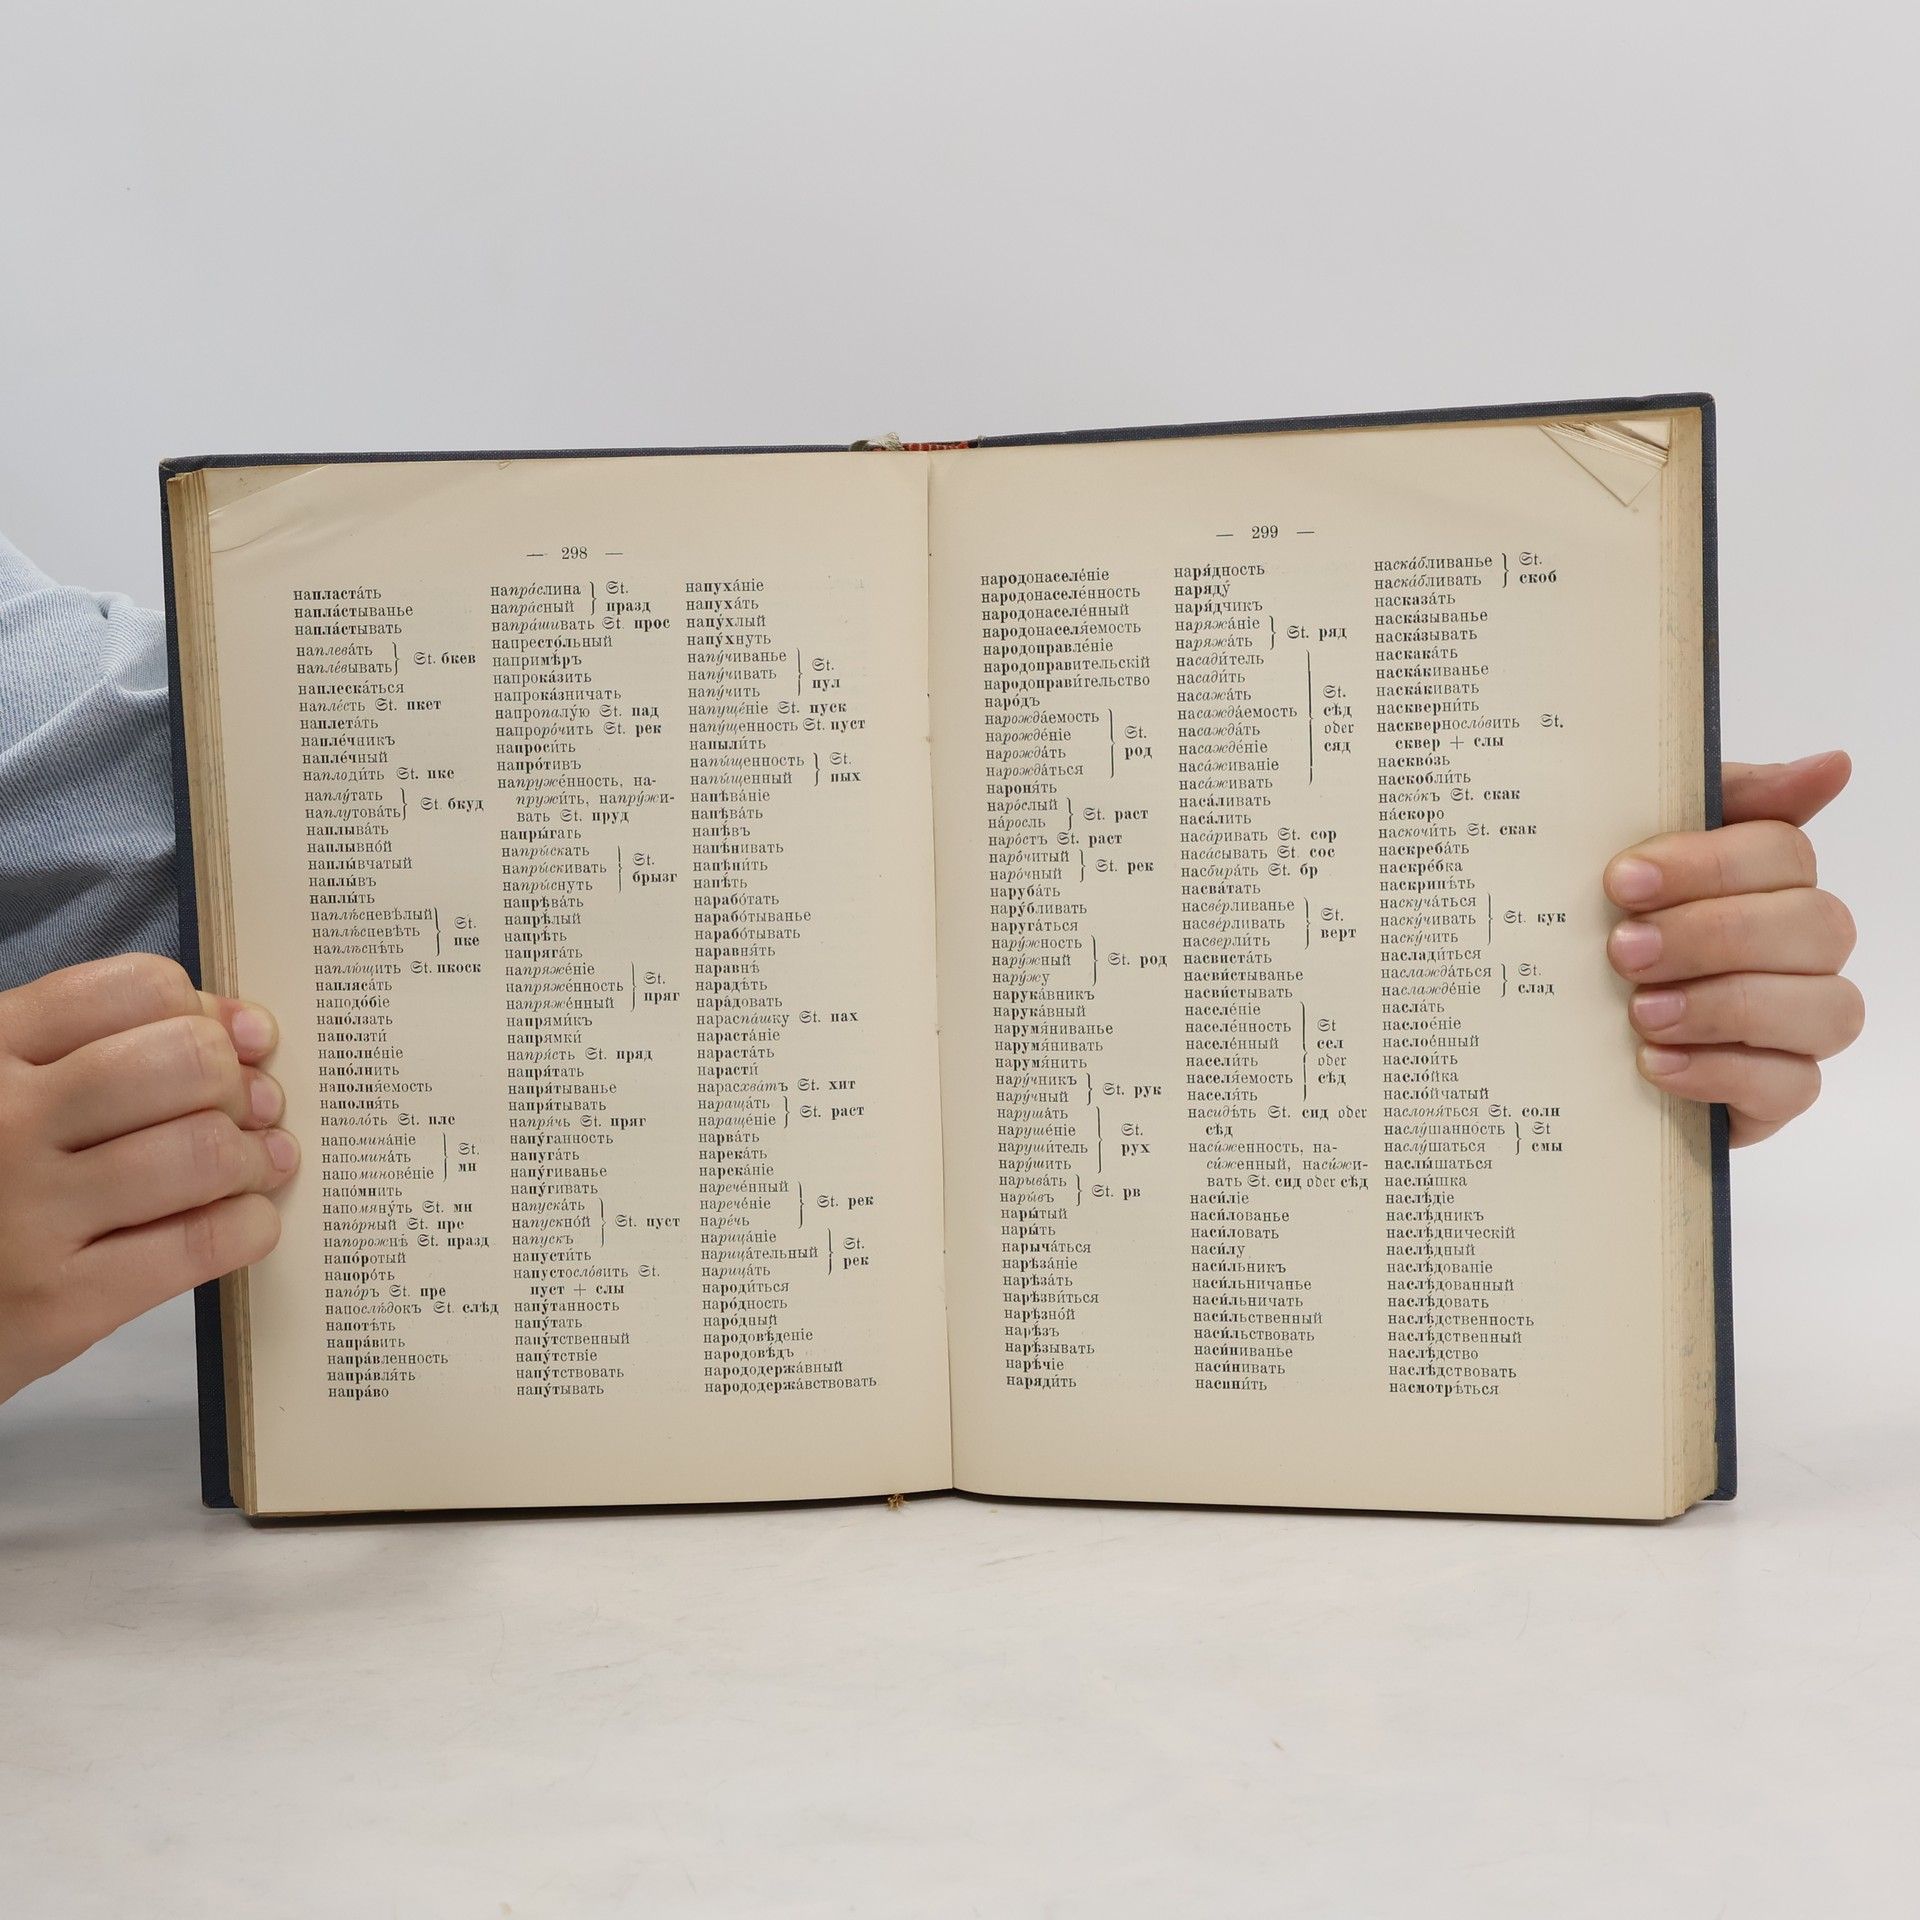 — 298 —
напласта́ть
напла́стыванье
напла́стывать
наплева́ть
наплёвывать } St. бкев
наплеска́ться
напле́сть St. пкет
наплета́ть
напле́чникъ
напле́чный
наплоди́ть St. пке
наплу́тать
наплутова́ть } St. бкуд
наплыва́ть
наплывно́й
наплы́вчатый
наплы́въ
наплы́ть
напле́сневѣлый
напле́сневѣть
наплѣснѣ́ть } St. пке
наплю́щить St. пкоск
напляса́ть
наподо́біе
напо́лзать
наползти́
наполне́ніе
напо́лнить
наполня́емость
наполня́ть
наполо́ть St. пле
напомина́ніе
напомина́ть
напоминове́ніе } St. мн
напо́мнить
напомяну́ть St. мн
напо́рный St. пре
напорожнѣ́ St. празд
напо́ротый
напоро́ть
напо́ръ St. пре
напослѣ́докъ St. слѣд
напотѣ́ть
напра́вить
напра́вленность
направля́ть
напра́во
напра́слина
напра́сный } St. празд
напра́шивать St. прос
напресто́льный
напримѣ́ръ
напрока́зить
напрока́зничать
напропалу́ю St. пад
напроро́чить St. рек
напроси́ть
напро́тивъ
напруже́нность, на-
пружи́ть, напру́жи-
вать St. пруд
напры́гать
напры́скать
напры́скивать
напры́снуть } St. брызг
напрѣва́ть
напрѣ́лый
напрѣ́ть
напряга́ть
напряже́ніе
напряже́нность
напряже́нный } St. пряг
напрями́къ
напрямки́
напря́сть St. пряд
напря́тать
напря́тыванье
напря́тывать
напря́чь St. пряг
напу́ганность
напуга́ть
напу́гиванье
напу́гивать
напуска́ть
напускно́й
напускъ } St. пуст
напусти́ть
напустосло́вить St.
пуст + слы
напу́танность
напу́тать
напу́тственный
напу́тствіе
напу́тствовать
напу́тывать
напуха́ніе
напуха́ть
напу́хлый
напу́хнуть
напу́чиванье
напу́чивать
напу́чить } St. пул
напуще́ніе St. пуск
напу́щенность St. пуст
напыли́ть
напы́щенность
напы́щенный } St. пых
напѣва́ніе
напѣва́ть
напѣ́въ
напѣ́нивать
напѣ́нить
напѣ́ть
нарабо́тать
нарабо́тыванье
нарабо́тывать
наравня́ть
наравнѣ́
нарадѣ́ть
нара́довать
нараспа́шку St. пах
нараста́ніе
нараста́ть
нарасти́
нарасхва́тъ St. хит
нараща́ть
нараще́ніе } St. раст
нарва́ть
нарека́ть
нарека́ніе
нарече́нный
нарече́ніе
наре́чь } St. рек
нарица́ніе
нарица́тельный
нарица́ть } St. рек
народи́ться
наро́дность
наро́дный
народовѣ́деніе
народовѣ́дъ
народодержа́вный
народодержа́вствовать
— 299 —
народонаселе́ніе
народонаселе́нность
народонаселе́нный
народонаселя́емость
народоправле́ніе
народоправи́тельскій
народоправи́тельство
наро́дъ
нарожда́емость
нарожде́ніе
нарожда́ть
нарожда́ться } St. род
нароня́ть
наро́слый
на́росль } St. раст
наро́стъ St. раст
наро́читый
наро́чный } St. рек
наруба́ть
нару́бливать
наруга́ться
нару́жность
нару́жный
нару́жу } St. род
нарука́вникъ
нарука́вный
нарумя́ниванье
нарумя́нивать
нарумя́нить
нару́чникъ
нару́чный } St. рук
наруша́ть
наруше́ніе
наруши́тель
нару́шить } St. рух
нарыва́ть
нары́въ } St. рв
нары́тый
нары́ть
нарыча́ться
нарѣ́заніе
нарѣ́зать
нарѣзви́ться
нарѣзно́й
нарѣ́зъ
нарѣ́зывать
нарѣ́чіе
наряди́ть
наря́дность
наряду́
наря́дчикъ
наряжа́ніе
наряжа́ть } St. ряд
насади́тель
насади́ть
насажа́ть
насажда́емость
насажда́ть
насажде́ніе
наса́живаніе
наса́живать } St. сѣд oder сяд
наса́ливать
наса́лить
наса́ривать St. сор
наса́сывать St. сос
насбира́ть St. бр
насва́тать
насве́рливанье
насве́рливать
насверли́ть } St. верт
насвиста́ть
насви́стыванье
насви́стывать
населе́ніе
населе́нность
населе́нный
насели́ть
населя́емость
населя́ть } St сел oder сѣд
насидѣ́ть St. сид oder
сѣд
наси́женность, на-
си́женный, наси́жи-
вать St. сид oder сѣд
наси́ліе
наси́лованье
наси́ловать
наси́лу
наси́льникъ
наси́льничанье
наси́льничать
наси́льственный
наси́льствовать
наси́ниванье
наси́нивать
насини́ть
наска́бливанье
наска́бливать } St. скоб
насказа́ть
наска́зыванье
наска́зывать
наскака́ть
наска́киванье
наска́кивать
наскверни́ть
наскверносло́вить St.
сквер + слы
наскво́зь
наскобли́ть
наско́къ St. скак
на́скоро
наскочи́ть St. скак
наскреба́ть
наскре́бка
наскрипѣ́ть
наскуча́ться
наску́чивать
наску́чить } St. кук
наслади́ться
наслажда́ться
наслажде́ніе } St. слад
насла́ть
наслое́ніе
наслоённый
наслои́ть
насло́йка
насло́йчатый
наслоня́ться St. солн
наслу́шанность
наслу́шаться } St смы
наслы́шаться
наслы́шка
наслѣ́діе
наслѣ́дникъ
наслѣ́дническій
наслѣ́дный
наслѣ́дованіе
наслѣ́дованный
наслѣ́довать
наслѣ́дственность
наслѣ́дственный
наслѣ́дство
наслѣ́дствовать
насмотрѣ́ться